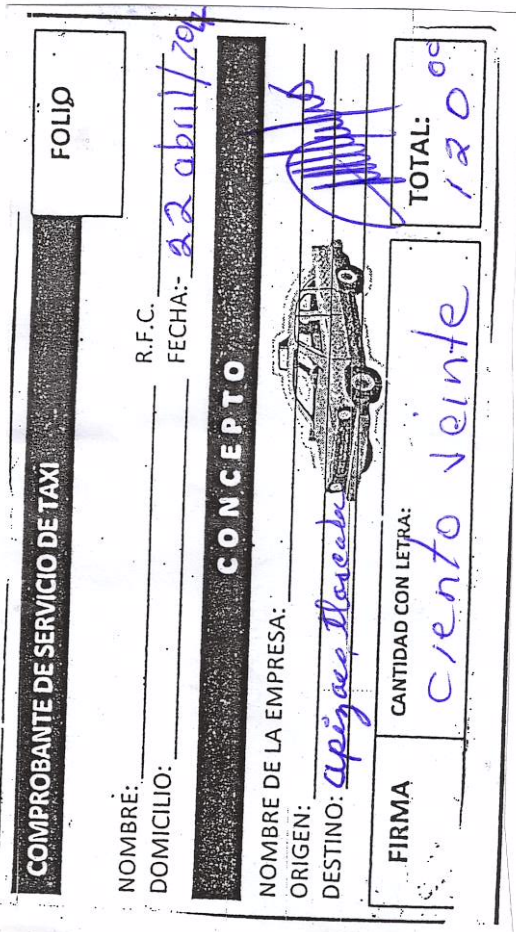 COMPROBANTE DE SERVICIO DE TAXI
FOLIO
NOMBRE:
R.F.C.
DOMICILIO:
FECHA:- 22 abril/
CONCEPTO
NOMBRE DE LA EMPRESA:
ORIGEN:
DESTINO: apizaco Tlaxcala
FIRMA
CANTIDAD CON LETRA:
Ciento veinte
TOTAL:
120 00